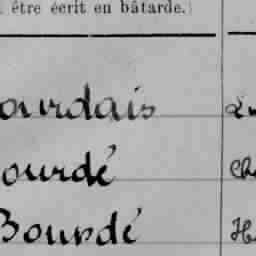 être écrit en bâtarde.)
ourdais
ourdé
Bourdé